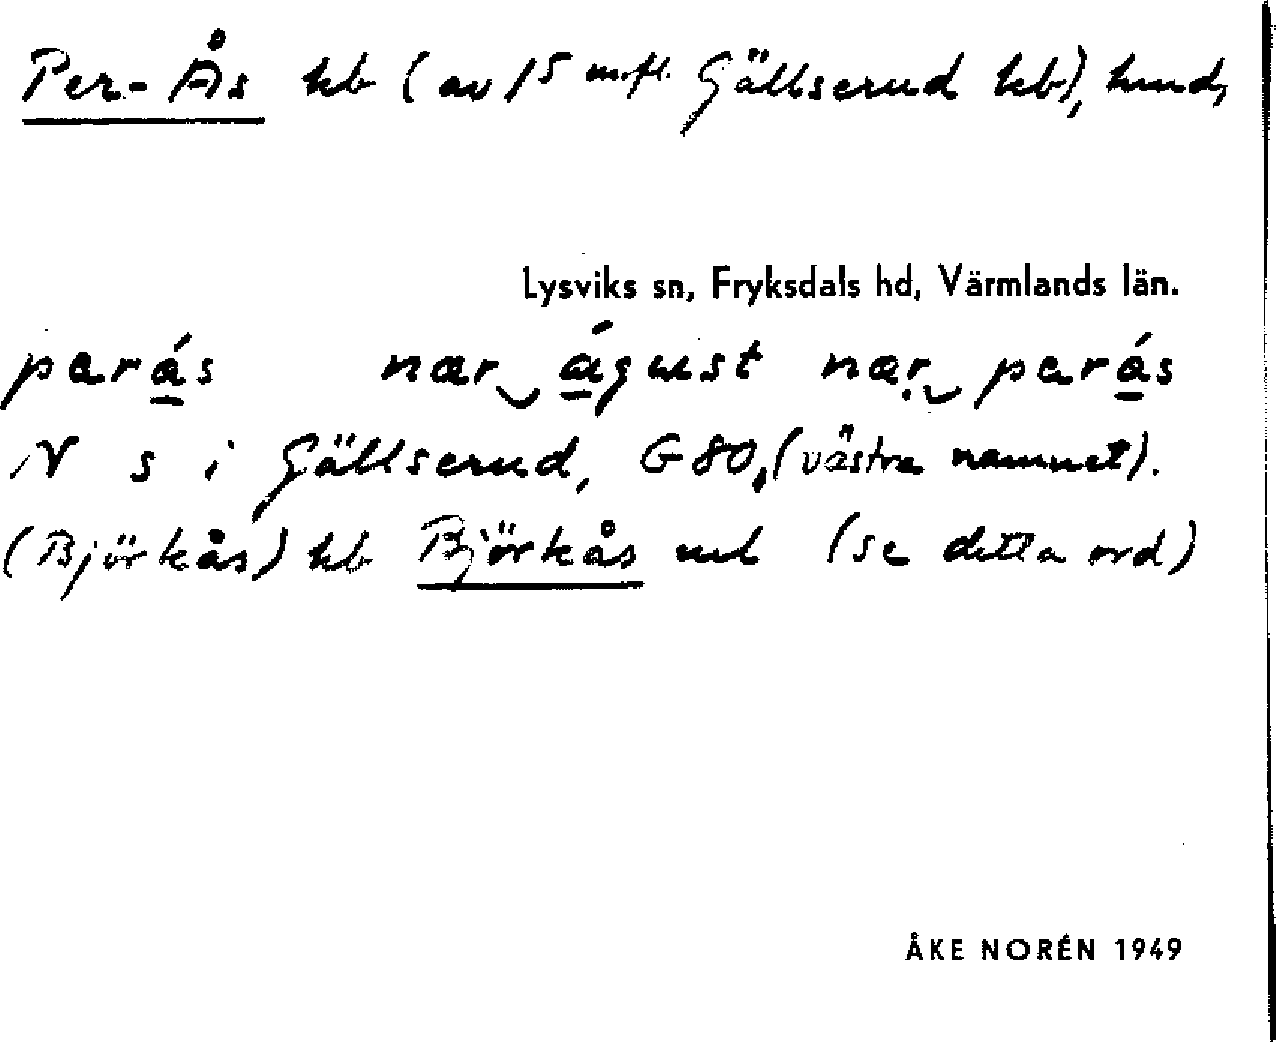 Per-Ås kb (av 15 m.fl. Gällserud kb), hmd,
Lysviks sn, Fryksdals hd, Värmlands län.
perás nær águst nær perás
N s i Gällserud, G 80, (västra namnet).
(Björkås) kb Björkås (se detta ord)
ÅKE NORÉN 1949